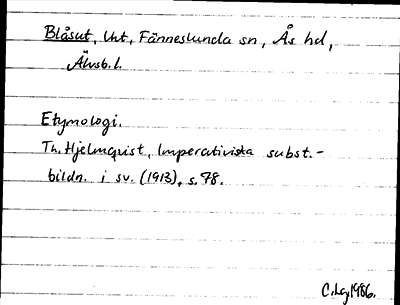 Blåsut, Uxt, Fänneslunda sn, Ås hd,
Älvsb. l.
Etymologi.
Th. Hjelmqvist, Imperativista subst.-
bildn. i sv. (1913), s. 78.
C. Lg 1986.